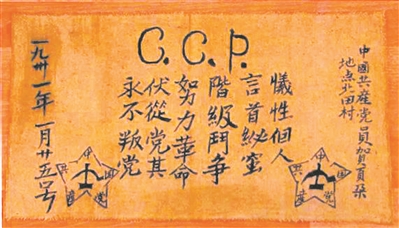 C.C.P.
中國共産党員賀頁朵
地点北田村
犧牲個人
言首秘蜜
階級鬥争
努力革命
伏從党其
永不叛党
一九卅一年一月廿五号